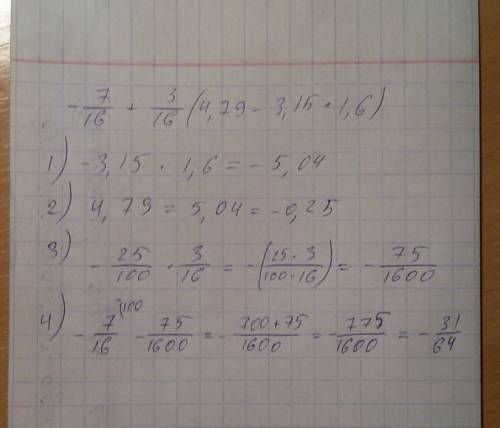 - 7/16 + 3/16 (4,79 - 3,15 · 1,6)
1) -3,15 · 1,6 = - 5,04
2) 4,79 = 5,04 = -0,25
3) - 25/100 · 3/16 = -(25 · 3/100 · 16) = - 75/1600
4) - 7/16 (100 - 75/1600 = - 700+75/1600 = - 775/1600 = - 31/64